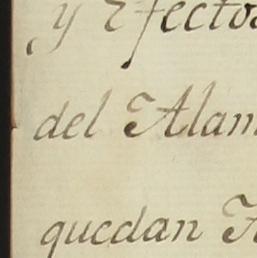 y Efectos
del Alam
quedan